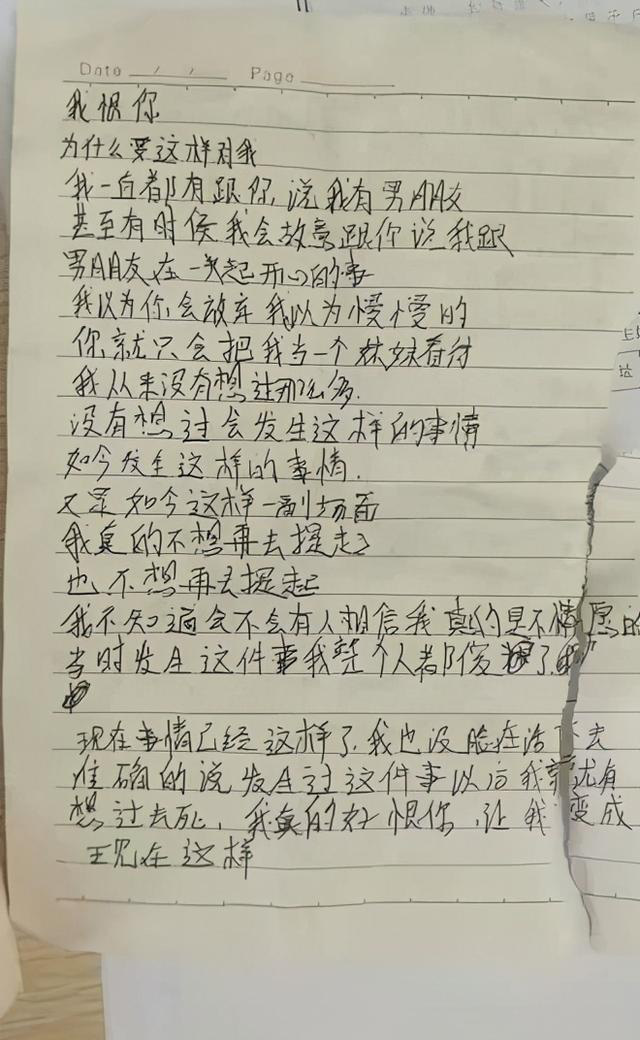 Date / / Page
我恨你
为什么要这样对我
我一直都有跟你说我有男朋友
甚至有时候我会故意跟你说我跟
男朋友在一起开心的事
我以为你会放弃我以为慢慢的
你就只会把我当一个妹妹看待
我从来没有想过那么多.
没有想过会发生这样的事情
如今发生这样的事情.
又是如今这样一副场面
我真的不想再去提起
也不想再去提起
我不知道会不会有人相信我真的是不情愿的
当时发生这件事我整个人都傻了
现在事情已经这样了,我也没脸在活下去
准确的说发生过这件事以后我就有
想过去死,我真的好恨你,让我变成
现在这样